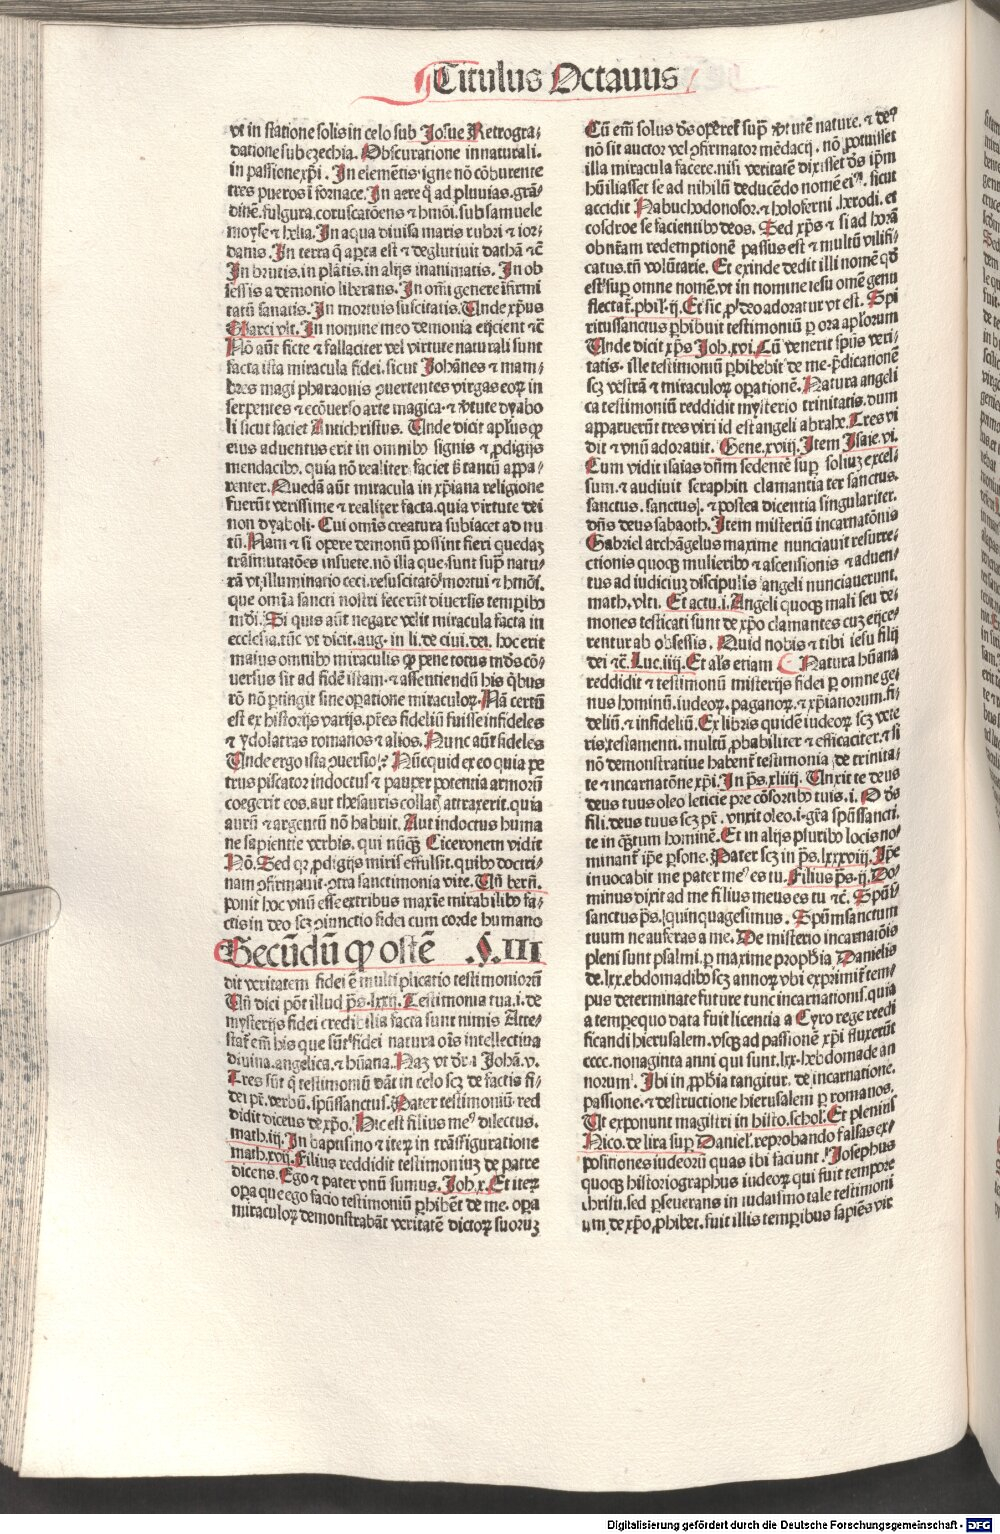 Titulus Octauus
vt in statione solis in celo sub Josue Retrogra-
datione sub ezechia. Obscuratione innaturali.
in passione xp̄i. In elemētis igne nō cōburente
tres pueros ī fornace. In aere q̄ ad pluuias. grā-
dinē. fulgura. coruscatōens ⁊ hmōi. sub samuele
moyse ⁊ helia. In aqua diuisa maris rubri ⁊ ior-
danis. In terra q̄ apta est ⁊ deglutiuit dathā ⁊c̄
In brutis. in plātis. in alijs inanimatis. In ob
sessis a demonio liberatis. In om̄i genere īfirmi
tatū sanatis. In mortuis suscitatis. Unde xp̄us
Marci vlt. In nomine meo demonia eijcient ⁊c̄
Nō aūt ficte ⁊ fallaciter vel virtute naturali sunt
facta ista miracula fidei. sicut Johānes ⁊ mam-
bres magi pharaonis ꝯuertentes virgas eoꝝ in
serpentes ⁊ ecōuerso arte magica. ⁊ v̓tute dyabo
li sicut faciet Antichristus. Unde dicit apl̄us ꝙ
eius aduentus erit in omnibꝰ signis ⁊ ꝓdigijs
mendacibꝰ. quia nō realiter faciet sꝫ tantū appa-
renter. Quedā aūt miracula in xp̄iana religione
fuerūt verissime ⁊ realiter facta. quia virtute dei
non dyaboli. Cui om̄is creatura subiacet ad nu
tū. Nam ⁊ si opere demonū possint fieri quedaꝫ
trāsmutatōes insuete. nō illa que sunt sup̄ natu-
rā vt. illuminatio ceci. resuscitatō mortui ⁊ hmōi.
que om̄ia sancti nostri fecerūt diuersis temp̄ibꝰ
mūdi. Si quis aūt negare velit miracula facta in
ecclesia. tūc vt dicit. aug. in li. de ciui. dei. hoc erit
maius omnibꝰ miraculis ꝙ pene totus mūdꝰ cō-
uersus sit ad fidē istam. ⁊ assentiendū his q̄bus
rō nō ꝑtingit sine oꝑatione miraculoꝝ. Nā certū
est ex historijs varijs. pr̄es fideliū fuisse infideles
⁊ ydolatras romanos ⁊ alios. Nunc aūt fideles
Unde ergo ista ꝯuersio? Nūcquid ex eo quia pe
trus piscator indoctus ⁊ pauper potentia armorū
coegerit eos. aut thesauris collatꝭ attraxerit. quia
aurū ⁊ argentū nō habuit. Aut indoctus huma
ne sapientie verbis. qui nūqꝫ Ciceronem vidit
Nō. Sed qꝛ ꝓdigijs miris effulsit. quibꝰ doctri-
nam ꝯfirmauit. ꝯtra sanctimonia vite. Uñ bern̄.
ponit hoc vnū esse ex tribus maxie mirabilibꝰ fa-
ctis in deo scꝫ ꝯiunctio fidei cum corde humano
Secūdū ꝙ ostē §. III
dit veritatem fidei ē multiplicatio testimoniorū
Uñ dici pōt illud p̄s. lxxij. Testimonia tua. i. de
mysterijs fidei credibilia facta sunt nimis Atte-
statꝭ em̄ his que sūt fidei natura oīs intellectiua
diuina. angelica. ⁊ hūana. Naꝫ vt dr̄ .i Johā. v.
Tres sūt q̄ testimoniū dāt in celo scꝫ de factis fi-
dei pr̄. verbū. sp̄ussanctus. Pater testimoniū red
didit diceus de xp̄o. Hic est filius meꝰ dilectus.
math. iij. In baptismo ⁊ iteꝝ in trāsfiguratione
math. xvij. Filius reddidit testimoniuꝫ de patre
dicens. Ego ⁊ pater vnū sumus. Joh. x. Et iteꝝ
oꝑa que ego facio testimoniū ꝑhibēt de me. oꝑa
miraculoꝝ demonstrabāt veritatē dictoꝝ suoruꝫ
Cū em̄ solus dꝰs oꝑeret sup̄ v̓tutē nature. ⁊ deꝰ
nō sit auctor vel ꝯfirmator mēdacij. nō potuisset
illa miracula facere. nisi veritatē dixisset dꝰs ip̄m
hūiliasset se ad nihilū deducēdo nomē eiꝰ. sicut
accidit Nabuchodonosor. ⁊ holoferni. herodi. et
cosdroe se facientibꝰ deos. Sed xp̄s ⁊ si ad horā
ob nr̄am redemptionē passus est ⁊ multū vilifi-
catus. tn̄ volūtarie. Et exinde dedit illi nomē qd̓
est sup̄ omne nomē. vt in nomine iesu omē genu
flectatꝭ. phil. ij. Et sic ꝓ deo adoratur vt est. Spi
ritussanctus ꝑhibuit testimoniū ꝑ ora apl̄orum
Unde dicit xp̄s Joh. xvi. Cū venerit sp̄us veri-
tatis. ille testimoniū ꝑhibebit de me. p̄dicationē
scꝫ vestrā ⁊ miraculoꝝ oꝑationē. Natura angeli
ca testimoniū reddidit mysterio trinitatis. dum
apparuerūt tres viri id est angeli abrahe. Tres vi
dit ⁊ vnū adorauit. Gene. xviij. Item Isaie. vi.
Cum vidit isaias dn̄m sedentē sup̄ soliuꝫ excel-
sum. ⁊ audiuit seraphin clamantia ter sanctus.
sanctus. sanctus. ⁊ postea dicentia singulariter.
dn̄s deus sabaoth. Item misteriū incarnatōnis
Gabriel archāgelus maxime nunciauit resurre-
ctionis quoqꝫ mulieribꝰ ⁊ ascensionis ⁊ aduen-
tus ad iudiciuꝫ discipulis angeli nunciauerunt.
math. vlti. Et actu. i. Angeli quoqꝫ mali seu de-
mones testicati sunt de xp̄o clamantes cuꝫ eijce-
rentur ab obsessis. Quid nobis ⁊ tibi iesu filij
dei ⁊c̄. Luc. iiij. Et al̓s etiam Natura hūana
reddidit ⁊ testimoniū misterijs fidei ꝑ omne ge-
nus hominū. iudeoꝝ. paganoꝝ. ⁊ xp̄ianorum. fi-
deliū. ⁊ infideliū. Ex libris quidē iudeoꝝ scꝫ vete
ris testamenti. multū ꝓbabiliter ⁊ efficaciter. ⁊ si
nō demonstratiue habent testimonia de trinita-
te ⁊ incarnatōne xp̄i. In p̄s. xliiij. Unxit te deus
deus tuus oleo leticie pre cōsortibꝰ tuis. i. O dꝰs
fili. deus tuus scꝫ pr̄. vnxit oleo. i. gr̄a sp̄ussancti.
te in q̄ꝫtum hominē. Et in alijs pluribꝰ locis no-
minant̓ ip̄e ꝑsone. Pater scꝫ in p̄s. lxxxviij. Ip̄e
inuocabit me pater meꝰ es tu. Filius p̄s. ij. Do-
minus dixit ad me filius meus es tu ⁊c̄. Sp̄us
sanctus p̄s. quinquagesimus. Sp̄umsanctum
tuum ne auferas a me. De misterio incarnatōis
pleni sunt psalmi. ꝑ maxime prophīa Danielis
de. lxx. ebdomadibꝰ scꝫ annoꝝ vbi exprimit̓ tem-
pus determinate future tunc incarnationis. quia
a tempe quo data fuit licentia a Cyro rege reedi
ficandi hierusalem. vsqꝫ ad passionē xp̄i fluxerūt
cccc. nonaginta anni qui sunt. lxx. hebdomade an
norum. Ibi in ꝓpb̄ia tangitur. de incarnatione.
passione. ⁊ destructione hierusalem ꝑ romanos.
Ut exponunt magistri in histo. schol. Et plenius
Nico. de lira sup̄ Daniel. reprobando falsas ex-
positiones iudeorū quas ibi faciunt. Josephus
quoqꝫ historiographus iudeoꝝ qui fuit tempore
christi. sed ꝑseuerans in iudaismo tale testimoni
um de xp̄o ꝑhibet. fuit illis temꝑibus sapiēs vir
Digitalisierung gefördert durch die Deutsche Forschungsgemeinschaft - DFG